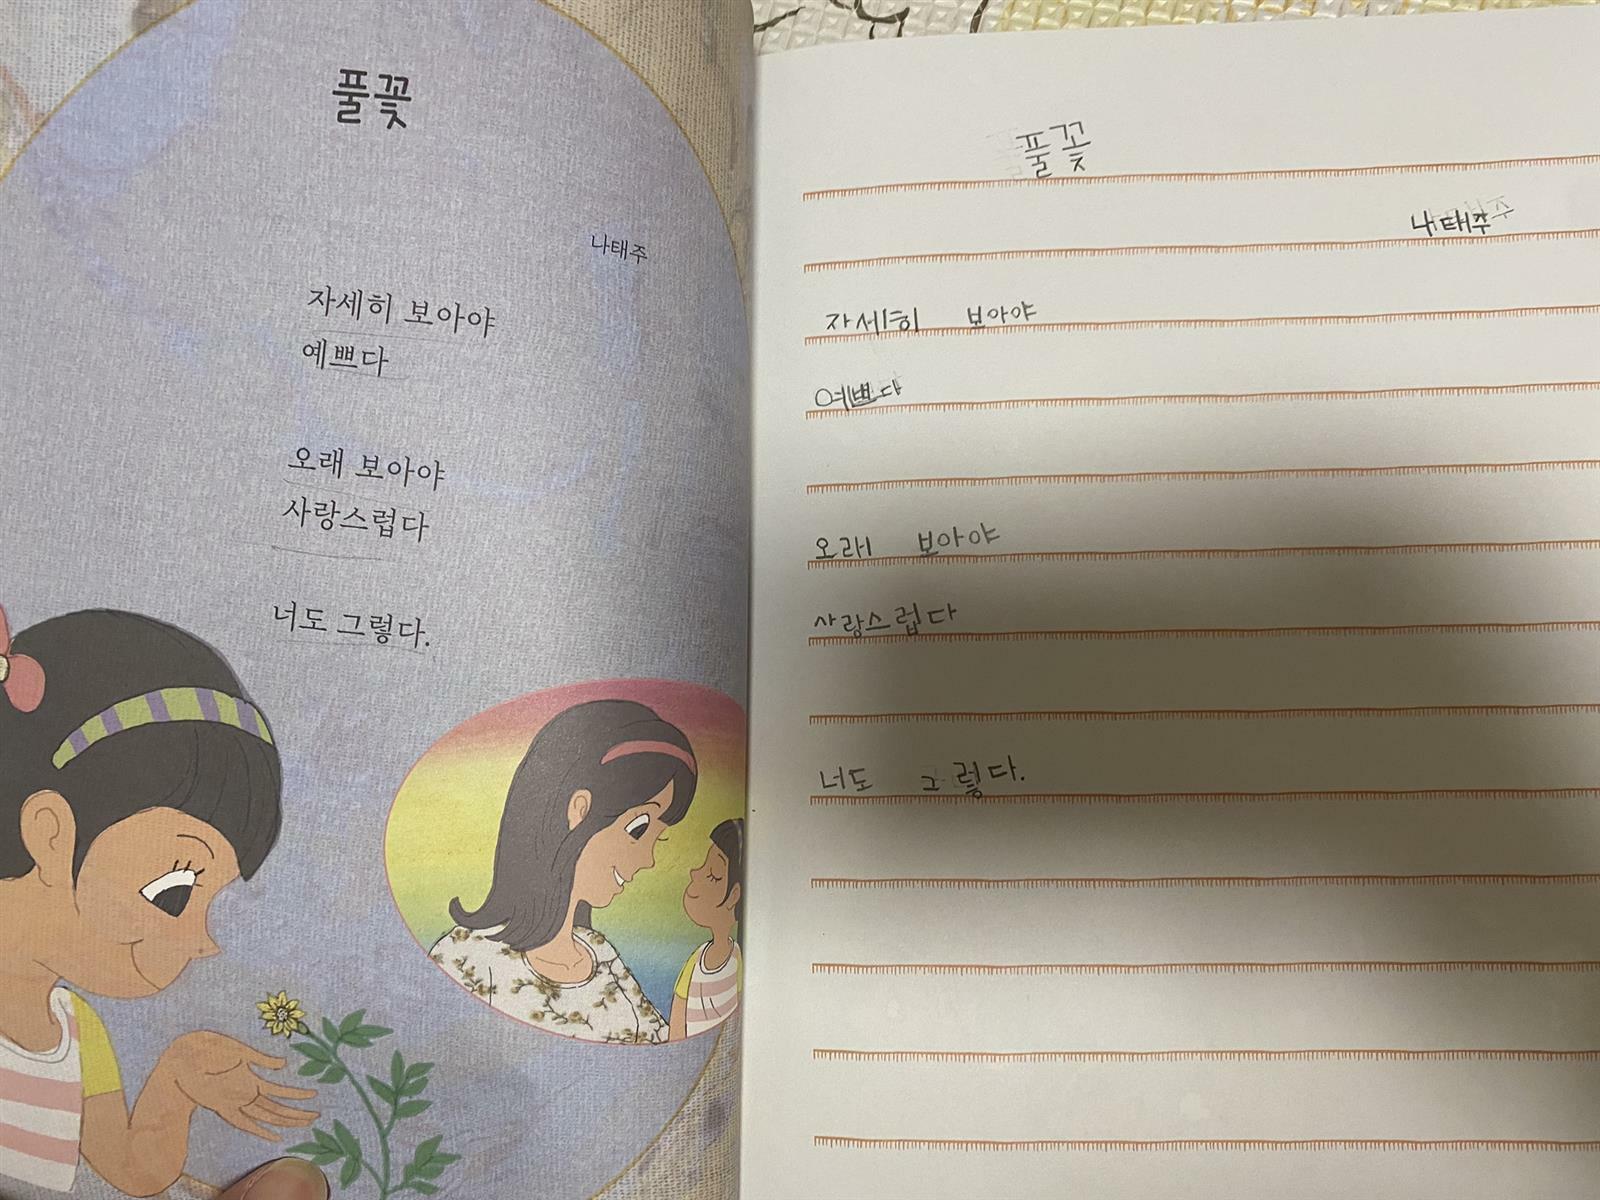 풀꽃
나태주
자세히 보아야
예쁘다
오래 보아야
사랑스럽다
너도 그렇다.
풀꽃
나태주
자세히 보아야
예쁘다
오래 보아야
사랑스럽다
너도 그렇다.